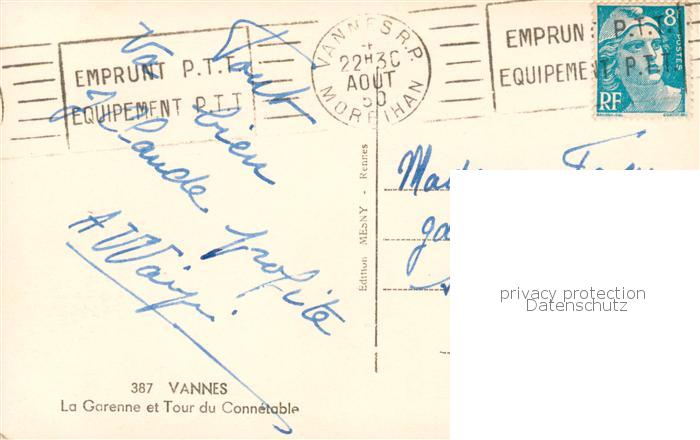 VANNES R.P.
22H30
AOUT
50
MORBIHAN
EMPRUNT P.T.T
EQUIPEMENT P.T.T
EMPRUN P.T.T
EQUIPEMENT P.T.T
8F
POSTES
RF
Tout
va bien
Claude profite
Edition MESNY - Rennes
387 VANNES
La Garenne et Tour du Connétable
privacy protection
Datenschutz